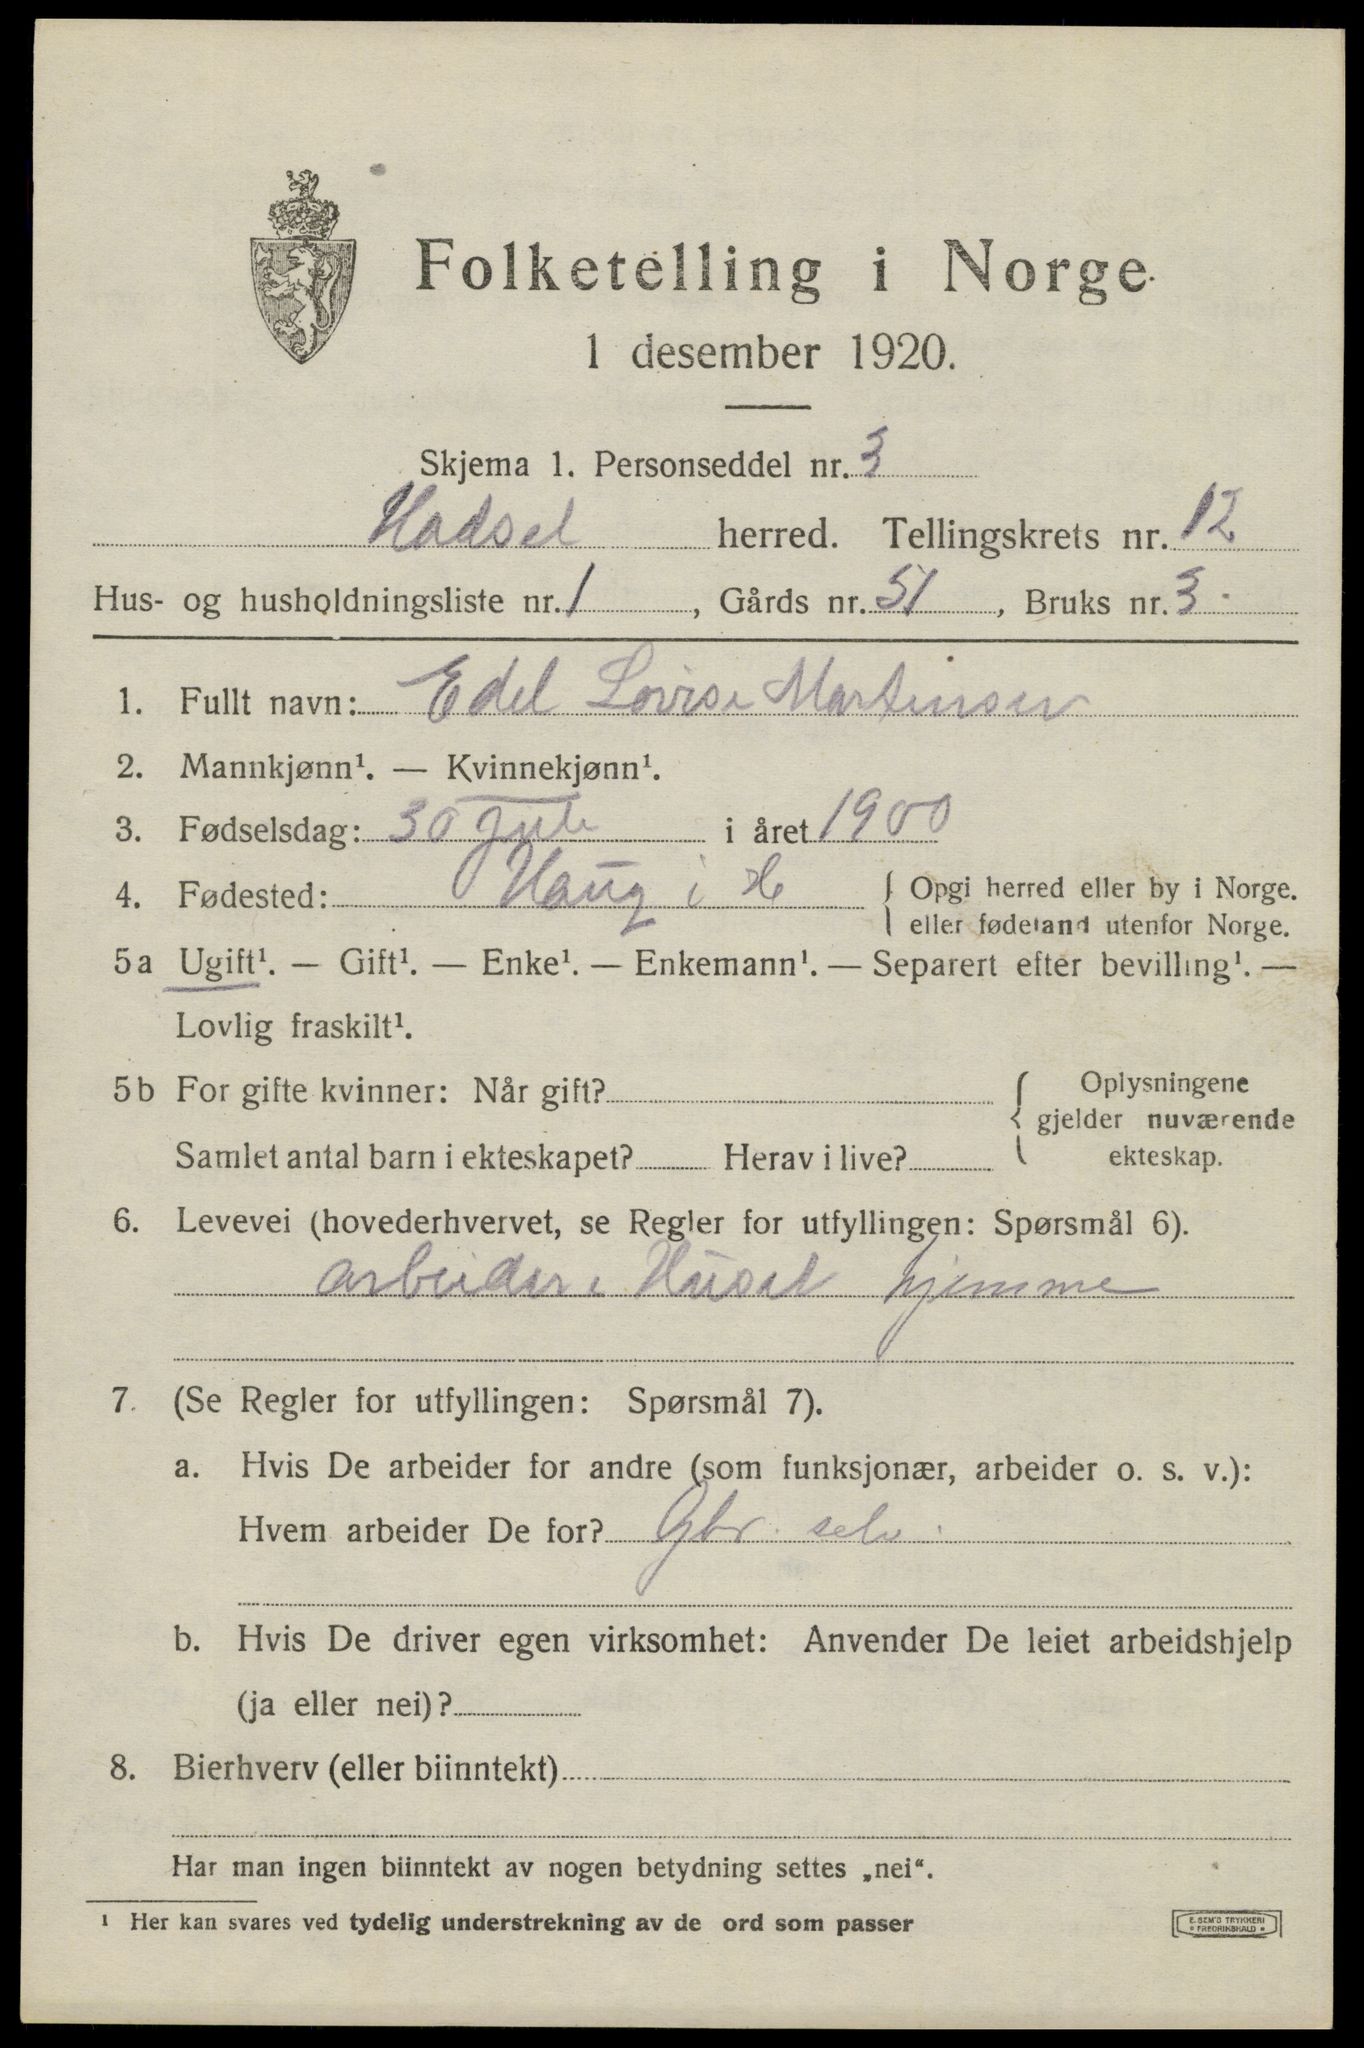 Folketelling i Norge.
1 desember 1920.
Skjema 1. Personseddel nr. 3
Hadsel herred. Tellingskrets nr. 12
Hus- og husholdningsliste nr. 1, Gårds nr. 51, Bruks nr. 3.
1. Fullt navn: Edel Lovise Martinsen
2. Mannkjønn¹. — Kvinnekjønn¹.
3. Fødselsdag: 30 Juli i året 1900
4. Fødested: Haug i H { Opgi herred eller by i Norge.
eller fødeland utenfor Norge.
5a Ugift¹. — Gift¹. — Enke¹. — Enkemann¹. — Separert efter bevilling¹. —
Lovlig fraskilt¹.
5b For gifte kvinner: Når gift? { Oplysningene
gjelder nuværende
Samlet antal barn i ekteskapet? Herav i live? ekteskap.
6. Levevei (hovederhvervet, se Regler for utfyllingen: Spørsmål 6).
arbeider i Huset hjemme
7. (Se Regler for utfyllingen: Spørsmål 7).
a. Hvis De arbeider for andre (som funksjonær, arbeider o. s. v.):
Hvem arbeider De for? Gbr. selv.
b. Hvis De driver egen virksomhet: Anvender De leiet arbeidshjelp
(ja eller nei)?
8. Bierhverv (eller biinntekt)
Har man ingen biinntekt av nogen betydning settes „nei“.
¹ Her kan svares ved tydelig understrekning av de ord som passer
E. SEM'S TRYKKERI
* FREDRIKSHALD *